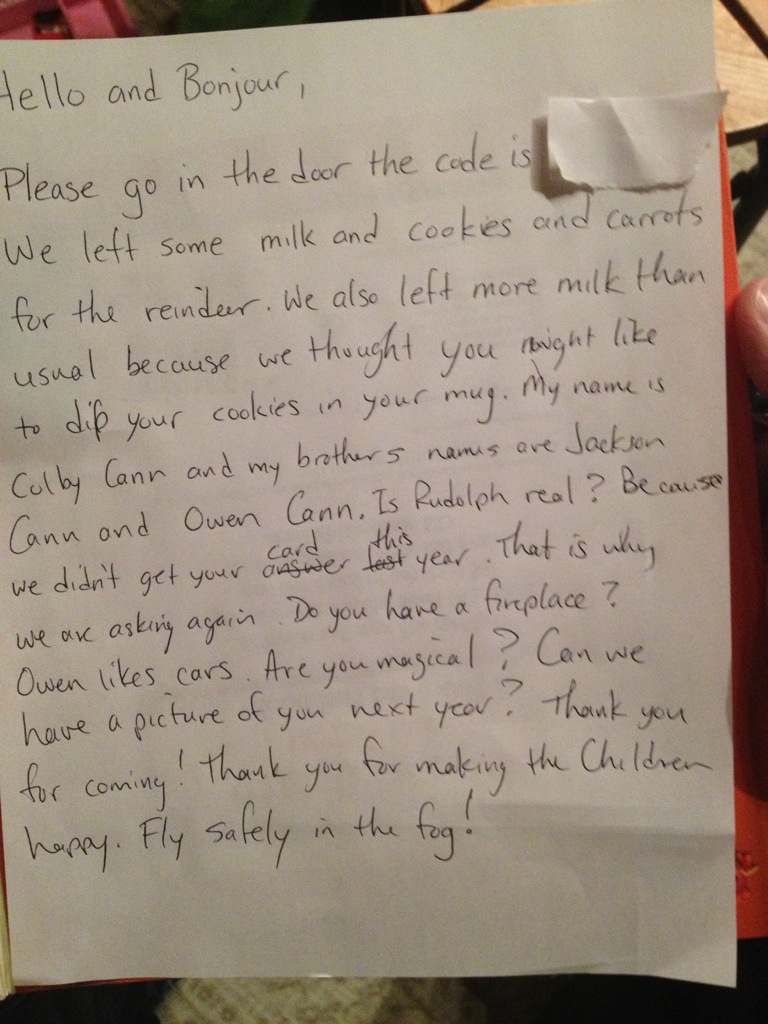 Hello and Bonjour,
Please go in the door the code is
We left some milk and cookies and carrots
for the reindeer. We also left more milk than
usual because we thought you might like
to dip your cookies in your mug. My name is
Colby Cann and my brothers names are Jackson
Cann and Owen Cann. Is Rudolph real? Because
card this
we didn't get your answer last year. That is why
we are asking again. Do you have a fireplace?
Owen likes cars. Are you magical? Can we
have a picture of you next year? Thank you
for coming! Thank you for making the Children
happy. Fly safely in the fog!